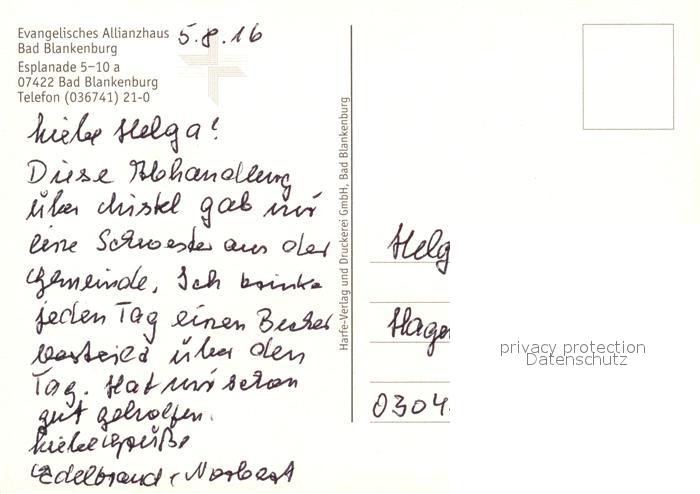 Evangelisches Allianzhaus
Bad Blankenburg
Esplanade 5–10 a
07422 Bad Blankenburg
Telefon (036741) 21-0
5.8.16
Liebe Helga!
Diese Abhandlung
über Mistel gab mir
eine Schwester aus der
Gemeinde. Ich trinke
jeden Tag einen Becher
verteilt über den
Tag. Hat mir schon
gut geholfen.
Liebe Grüße
Edelbrand + Norbert
Harfe-Verlag und Druckerei GmbH, Bad Blankenburg
Helg
Hage
0304
privacy protection
Datenschutz